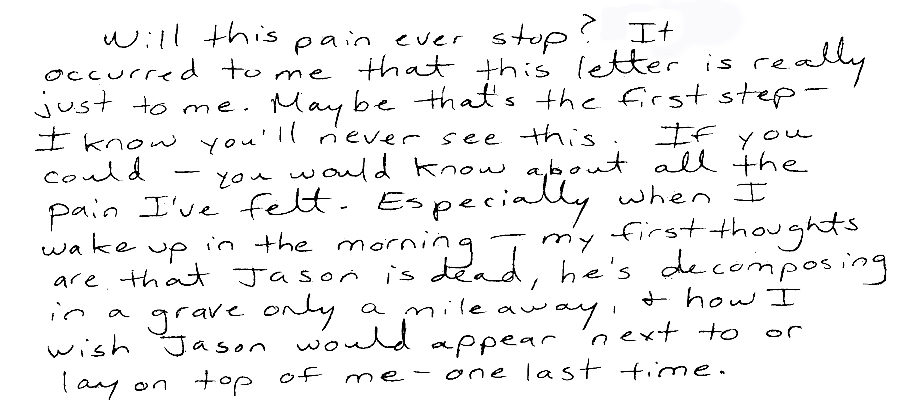 Will this pain ever stop? It
occurred to me that this letter is really
just to me. Maybe that's the first step-
I know you'll never see this. If you
could - you would know about all the
pain I've felt. Especially when I
wake up in the morning - my first thoughts
are that Jason is dead, he's decomposing
in a grave only a mile away, + how I
wish Jason would appear next to or
lay on top of me - one last time.